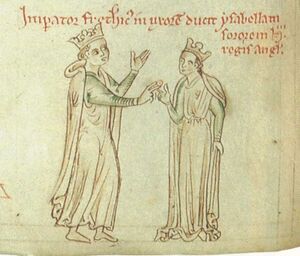 Imperator frethic' in uxorē ducit ysabellam
sororem h
regis angl.